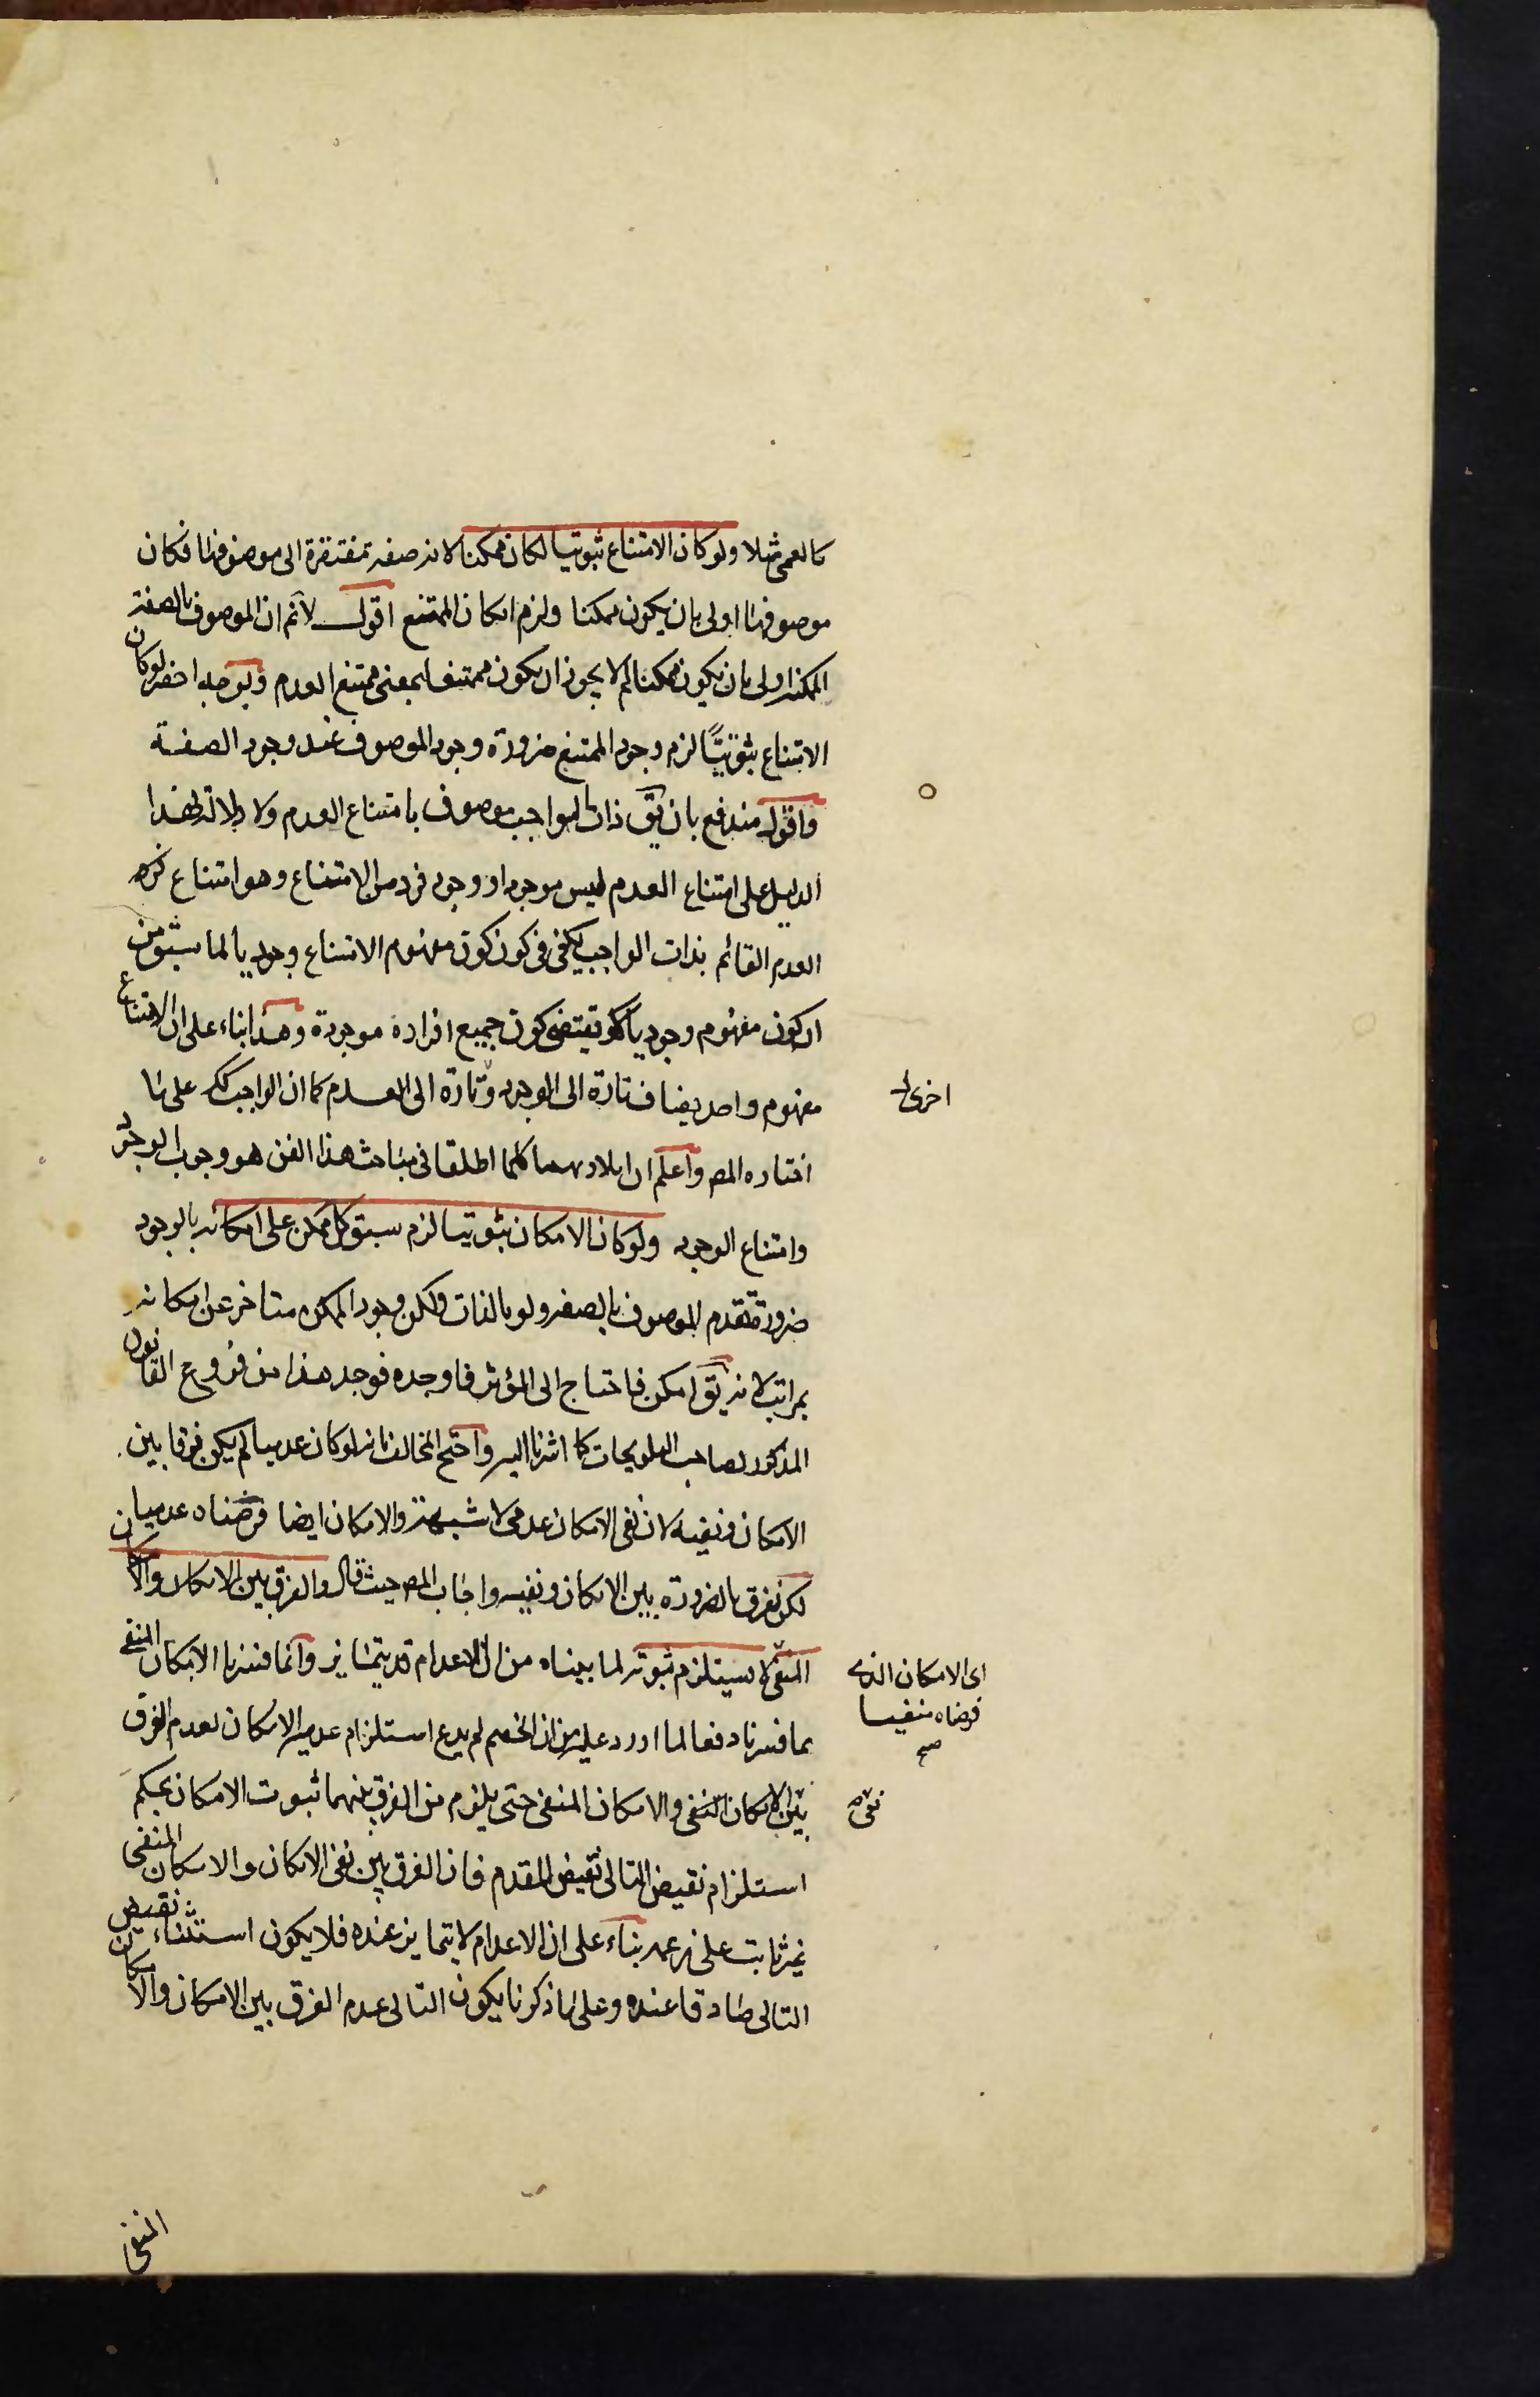 كالعمى مثلا ولو كان الامتناع ثبوتيا لكان ممكنا لانه صفة مفتقرة الى موصوفها فكان
موصوفها اولى بان يكون ممكنا ولزم امكان الممتنع اقول لانم ان الموصوف بالصفة
الممكنة اولى بان يكون ممكنا لم لا يجوز ان يكون ممتنعا بمعنى ممتنع العدم وبوجه اخر لو كان
الامتناع ثبوتيًّا لزم وجود الممتنع ضرورة وجود الموصوف عند وجود الصفة
واقول مندفع بان يق ذات الواجب موصوف بامتناع العدم ولا دلالة لهذا
الدليل على امتناع العدم ليس موجودا ووجود فرد من الامتناع وهو امتناع
العدم القائم بذات الواجب يكفى فى كون كون مفهوم الامتناع وجوديا لما سبق من
ان كون مفهوم وجوديا لا يقتضى كون جميع افراده موجودة وهذا بناء على ان الامتناع
مفهوم واحد يضاف تارة الى الوجود وتارة الى العدم كما ان الواجب كك على ما
اخرى
اختاره المصـ واعلم ان المراد بهما كلما اطلقا فى مباحث هذا الفن هو وجوب الوجود
وامتناع الوجود ولو كان الامكان ثبوتيا لزم سبق كل ممكن على امكانه بالوجود
ضرورة تقدم الموصوف بالصفة ولو بالذات ولكن وجود الممكن متاخر عن امكانه
بمراتب لانه يق امكن فاحتاج الى المؤثر فاوجده فوجد هذا من فروع القانون
المذكور لصاحب التلويحات كما اشرنا اليه واحتج المخالف بانه لو كان عدميا لم يكن فرقا بين
الامكان ونفيه لان نفى الامكان عدمى لا شبهة والامكان ايضا فرضناه عدميا
لكن نفرق بالضرورة بين الامكان ونفيه واجاب المصـ حيث قال والفرق بين الامكان والامكان
المنفى لا يستلزم ثبوته لما بيناه من ان الاعدام قد يتمايز وانما فسرنا الامكان المنفى
اى الامكان الذى
فرضناه منفيا
صح
بما فسرنا دفعا لما اورد عليه من ان الخصم لم يدع استلزام عدمية الامكان لعدم الفرق
بين الامكان المنفى والامكان المنفى حتى يلزم من الفرق بينهما ثبوت الامكان بحكم
نفى
استلزام نقيض التالى نقيض المقدم فان الفرق بين نفى الامكان والامكان المنفى
غير ثابت على زعمه بناء على ان الاعدام لا يتمايز عنده فلا يكون استثناء نقيض
التالى صادقا عنده وعلى ما ذكرنا يكون التالى عدم الفرق بين الامكان والامكان
المنفى